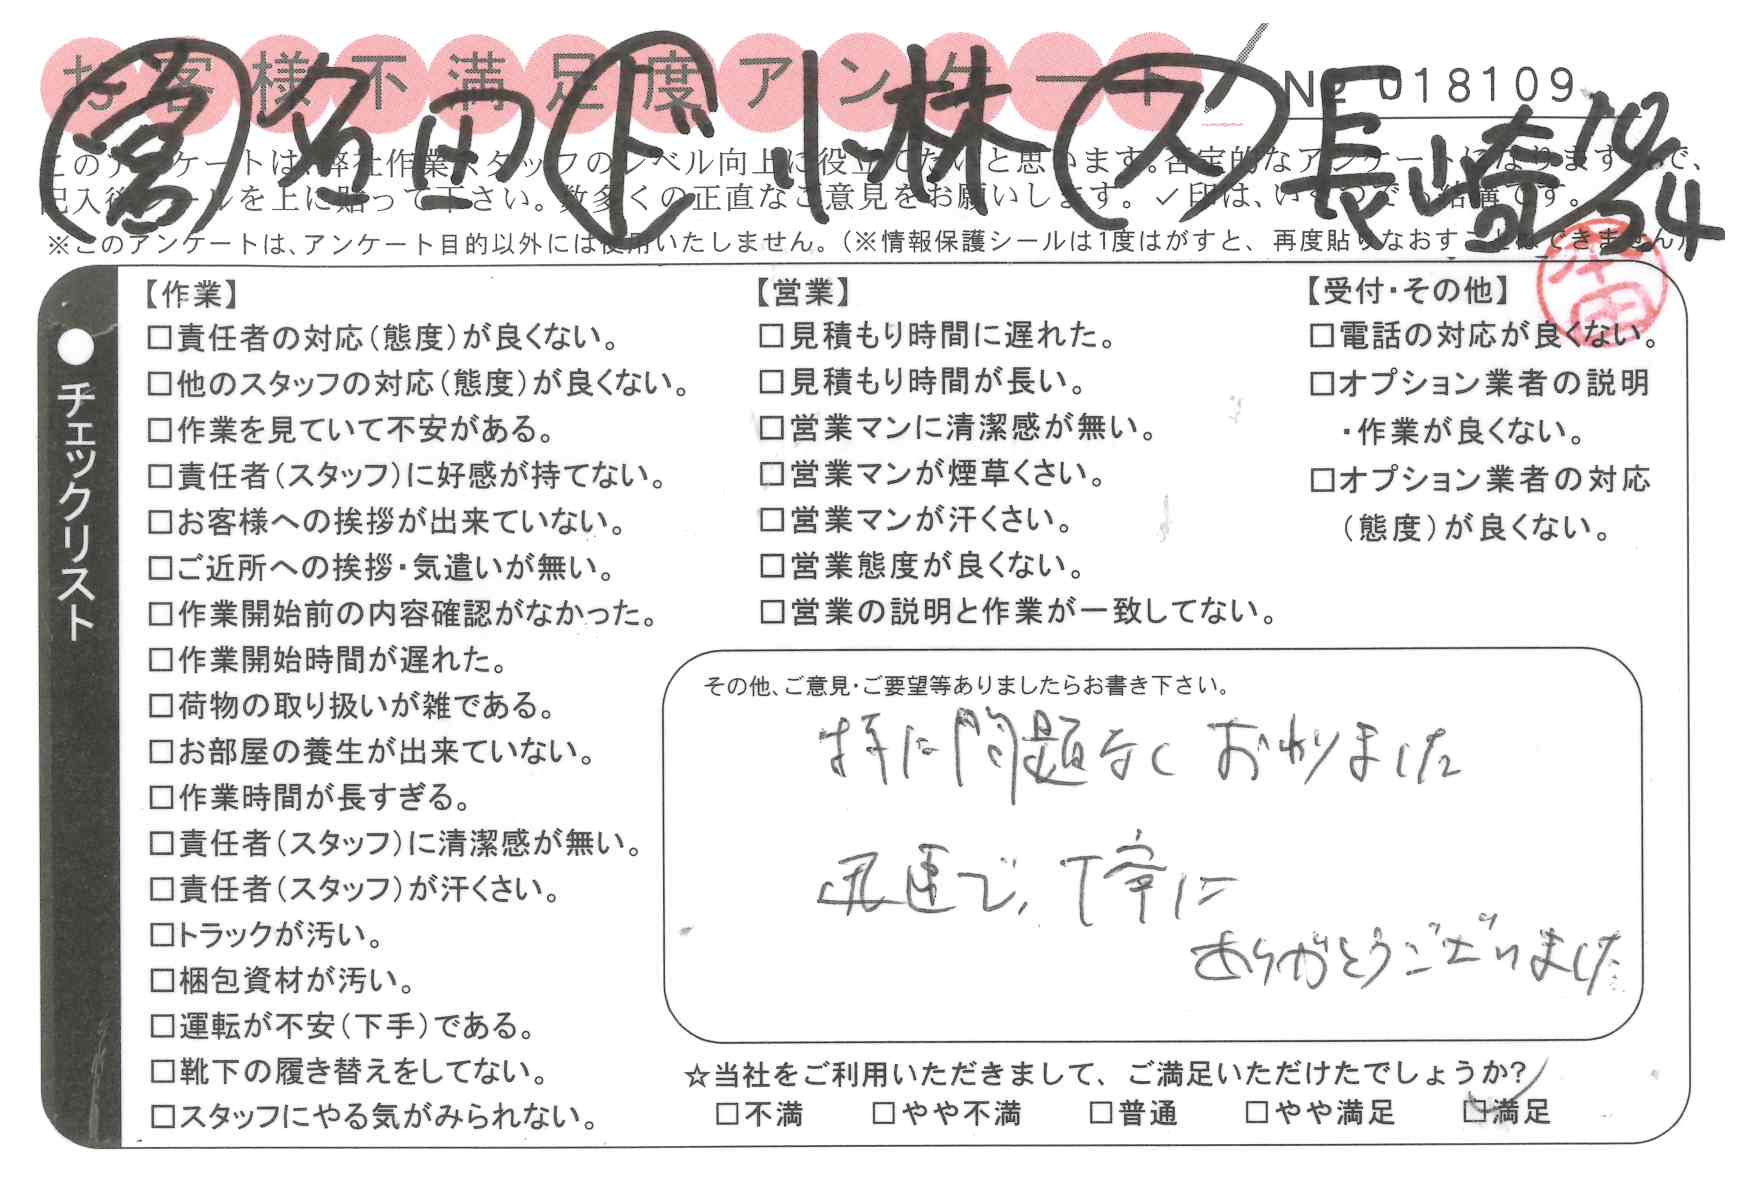 お客様不満足度アンケート
№ 018109
㊂営 名田 ㋣ド 小林 ㋜ス 長崎 10/24
このアンケートは、弊社作業スタッフのレベル向上に役立てたいと思います。否定的なアンケートになりますので、
記入後シールを上に貼って下さい。数多くの正直なご意見をお願いします。✓印は、いくつでも結構です。
※このアンケートは、アンケート目的以外には使用いたしません。(※情報保護シールは1度はがすと、再度貼りなおすことはできません)
チェックリスト
【作業】
□責任者の対応(態度)が良くない。
□他のスタッフの対応(態度)が良くない。
□作業を見ていて不安がある。
□責任者(スタッフ)に好感が持てない。
□お客様への挨拶が出来ていない。
□ご近所への挨拶・気遣いが無い。
□作業開始前の内容確認がなかった。
□作業開始時間が遅れた。
□荷物の取り扱いが雑である。
□お部屋の養生が出来ていない。
□作業時間が長すぎる。
□責任者(スタッフ)に清潔感が無い。
□責任者(スタッフ)が汗くさい。
□トラックが汚い。
□梱包資材が汚い。
□運転が不安(下手)である。
□靴下の履き替えをしてない。
□スタッフにやる気がみられない。
【営業】
□見積もり時間に遅れた。
□見積もり時間が長い。
□営業マンに清潔感が無い。
□営業マンが煙草くさい。
□営業マンが汗くさい。
□営業態度が良くない。
□営業の説明と作業が一致してない。
【受付・その他】
□電話の対応が良くない。
□オプション業者の説明
・作業が良くない。
□オプション業者の対応
(態度)が良くない。
その他、ご意見・ご要望等ありましたらお書き下さい。
特に問題なくおわりました
迅速で、丁寧に
ありがとうございました
☆当社をご利用いただきまして、ご満足いただけたでしょうか?
□不満 □やや不満 □普通 □やや満足 □満足